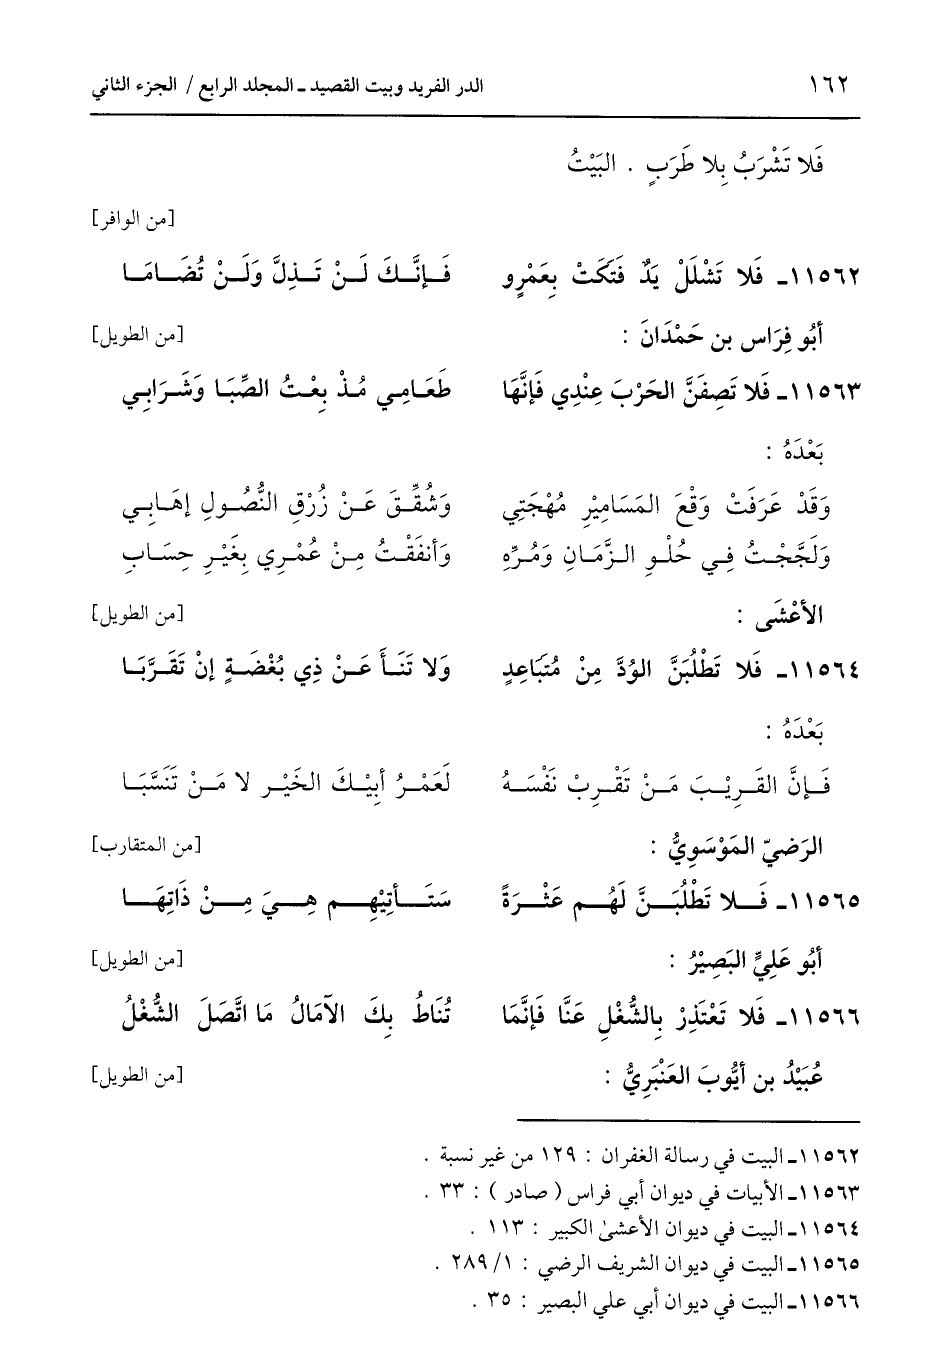 ١٦٢ الدر الفريد وبيت القصيد ـ المجلد الرابع / الجزء الثاني
فَلا تَشْرَبُ بِلا طَرَبٍ . البَيْتُ
[من الوافر]
١١٥٦٢ـ فَلا تَشْلَلْ يَدٌ فَتَكَتْ بِعَمْرٍو فَـإنَّـكَ لَـنْ تَـذِلَّ وَلَـنْ تُضَـامَـا
أبُو فِرَاس بن حَمْدَانَ : [من الطويل]
١١٥٦٣ـ فَلا تَصِفَنَّ الحَرْبَ عِنْدِي فَإنَّهَا طَعَـامِـي مُـذْ بِعْـتُ الصِّبَـا وَشَـرَابِـي
بَعْدَهُ :
وَقَدْ عَرَفَتْ وَقْعَ المَسَامِيْرِ مُهْجَتِي وَشُقِّـقَ عَـنْ زُرْقِ النُّصُـولِ إهَـابِـي
وَلَجَّجْـتُ فِـي حُلْـوِ الـزَّمَـانِ وَمُـرِّهِ وَأنفَقْـتُ مِـنْ عُمْـرِي بِغَيْـرِ حِسَـابِ
الأعْشَى : [من الطويل]
١١٥٦٤ـ فَلا تَطْلُبَنَّ الوُدَّ مِنْ مُتَبَاعِدٍ وَلا تَنَـأَ عَـنْ ذِي بُغْضَـةٍ إنْ تَقَـرَّبَـا
بَعْدَهُ :
فَـإنَّ القَـرِيْـبَ مَـنْ تَقْـرِبْ نَفْسَـهُ لَعَمْـرُ أبِيْـكَ الخَيْـرِ لا مَـنْ تَنَسَّبَـا
الرَضيّ المَوْسَوِيُّ : [من المتقارب]
١١٥٦٥ـ فَـلا تَطْلُبَـنَّ لَهُـم عَثْـرَةً سَتَـأتِيْهِـم هِـيَ مِـنْ ذَاتِهَـا
أبُو عَلِيٍّ البَصِيْرُ : [من الطويل]
١١٥٦٦ـ فَلا تَعْتَذِرْ بِالشُّغْلِ عَنَّا فَإنَّمَا تُنَاطُ بِكَ الآمَالُ مَا اتَّصَلَ الشُّغْلُ
عُبَيْدُ بن أيُّوبَ العَنْبَرِيُّ : [من الطويل]
١١٥٦٢ـ البيت في رسالة الغفران : ١٢٩ من غير نسبة .
١١٥٦٣ـ الأبيات في ديوان أبي فراس ( صادر ) : ٣٣ .
١١٥٦٤ـ البيت في ديوان الأعشىٰ الكبير : ١١٣ .
١١٥٦٥ـ البيت في ديوان الشريف الرضي : ١/ ٢٨٩ .
١١٥٦٦ـ البيت في ديوان أبي علي البصير : ٣٥ .